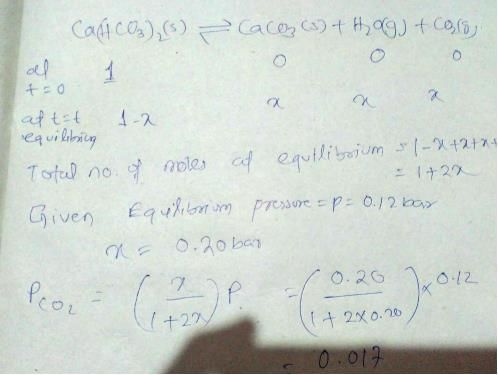 Ca(HCO3)2(s) ⇌ CaCO3(s) + H2O(g) + CO2(g)
at t=0 1 0 0 0
at t=t equilibrium 1-x x x x
Total no. of moles at equilibrium = 1-x+x+x+
= 1+2x
Given Equilibrium pressure = P = 0.12 bar
x = 0.20 bar
PCO2 = (x / 1+2x) P = (0.20 / 1+2×0.20) × 0.12
= 0.017